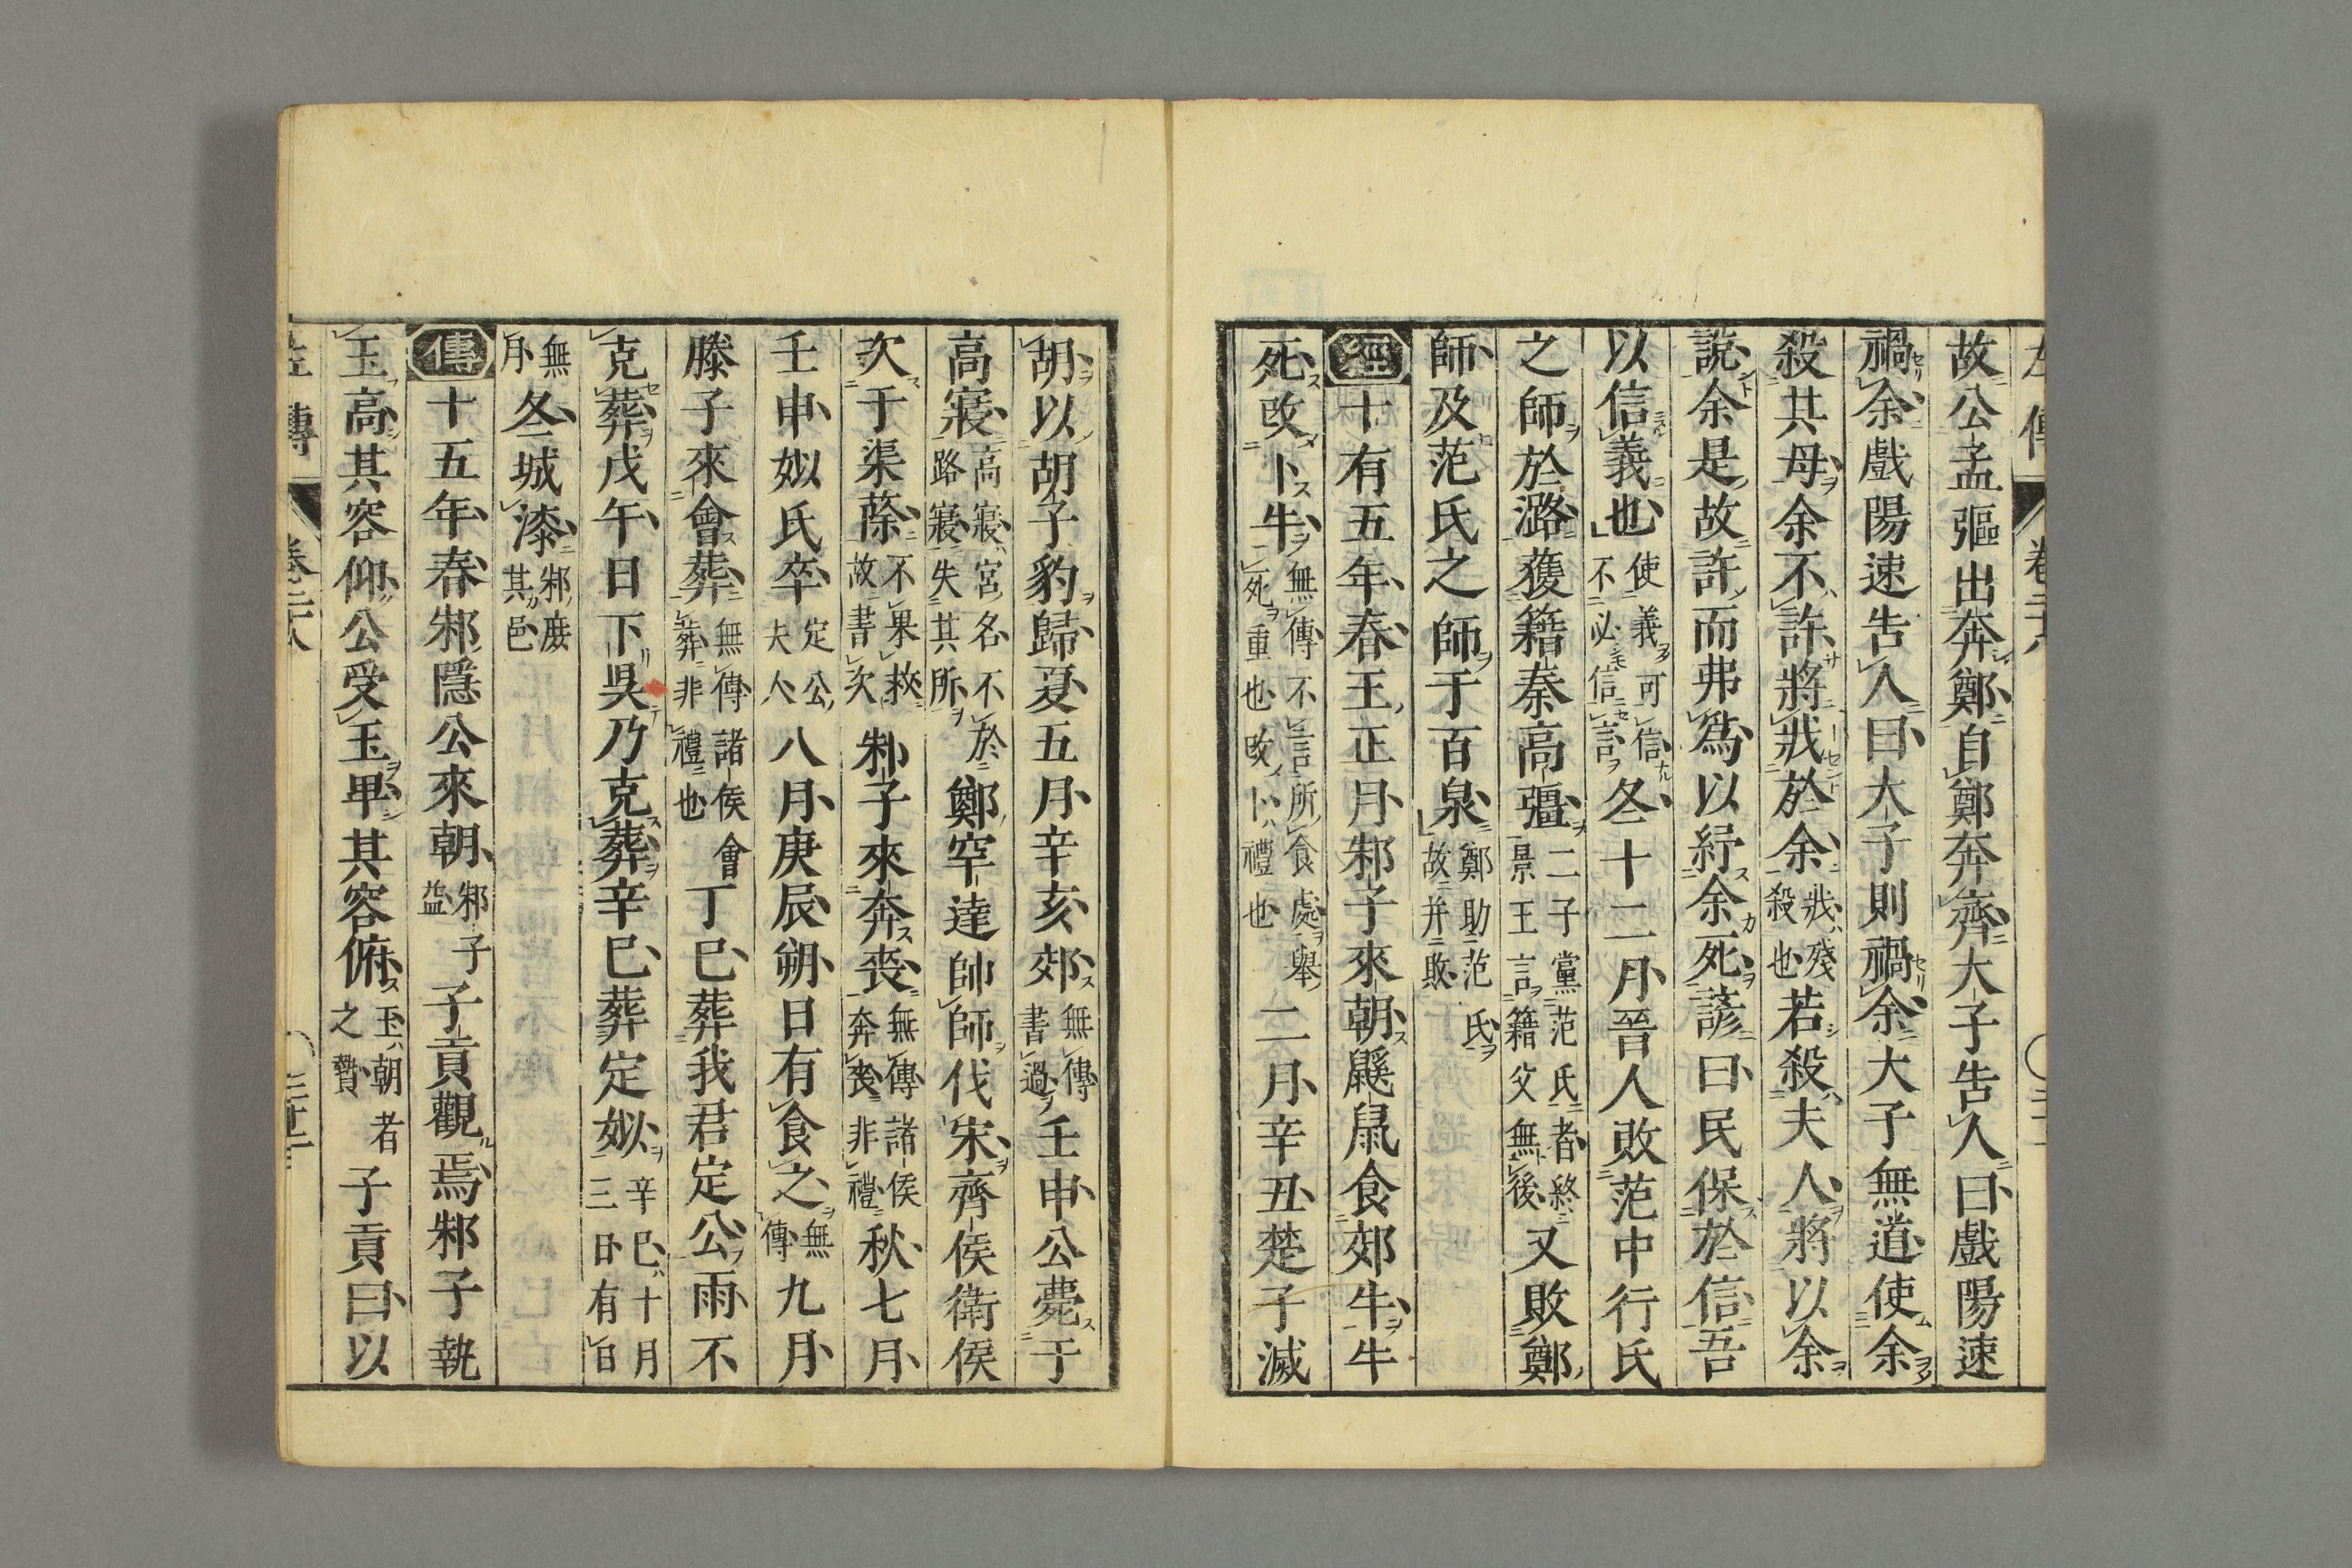 故公孟彄出奔鄭自鄭奔齊大子告人曰戲陽速
禍余戲陽速告人曰大子則禍余大子無道使余
殺其母余不許將戕於余戕殘殺也若殺夫人將以余
說余是故許而弗爲以紓余死諺曰民保於信吾
以信義也使義可信不必信言冬十二月晉人敗范中行氏
之師於潞獲籍秦高彊二子黨范氏者終景王言籍父無後又敗鄭
師及范氏之師于百泉鄭助范氏故并敗
經十有五年春王正月邾子來朝鼷鼠食郊牛牛
死改卜牛無傳不言所食處舉死重也改卜禮也二月辛丑楚子滅
胡以胡子豹歸夏五月辛亥郊無傳書過壬申公薨于
高寢高寢宮名不於路寢失其所鄭罕達帥師伐宋齊侯衛侯
次于渠蒢不果救故書次邾子來奔喪無傳諸侯奔喪非禮秋七月
壬申姒氏卒定公夫人八月庚辰朔日有食之無傳九月
滕子來會葬無傳諸侯會葬非禮也丁巳葬我君定公雨不
克葬戊午日下昃乃克葬辛巳葬定姒辛巳十月三日有日
無月冬城漆邾庶其邑
傳十五年春邾隱公來朝邾子益子貢觀焉邾子執
玉高其容仰公受玉卑其容俯玉朝者之贄子貢曰以